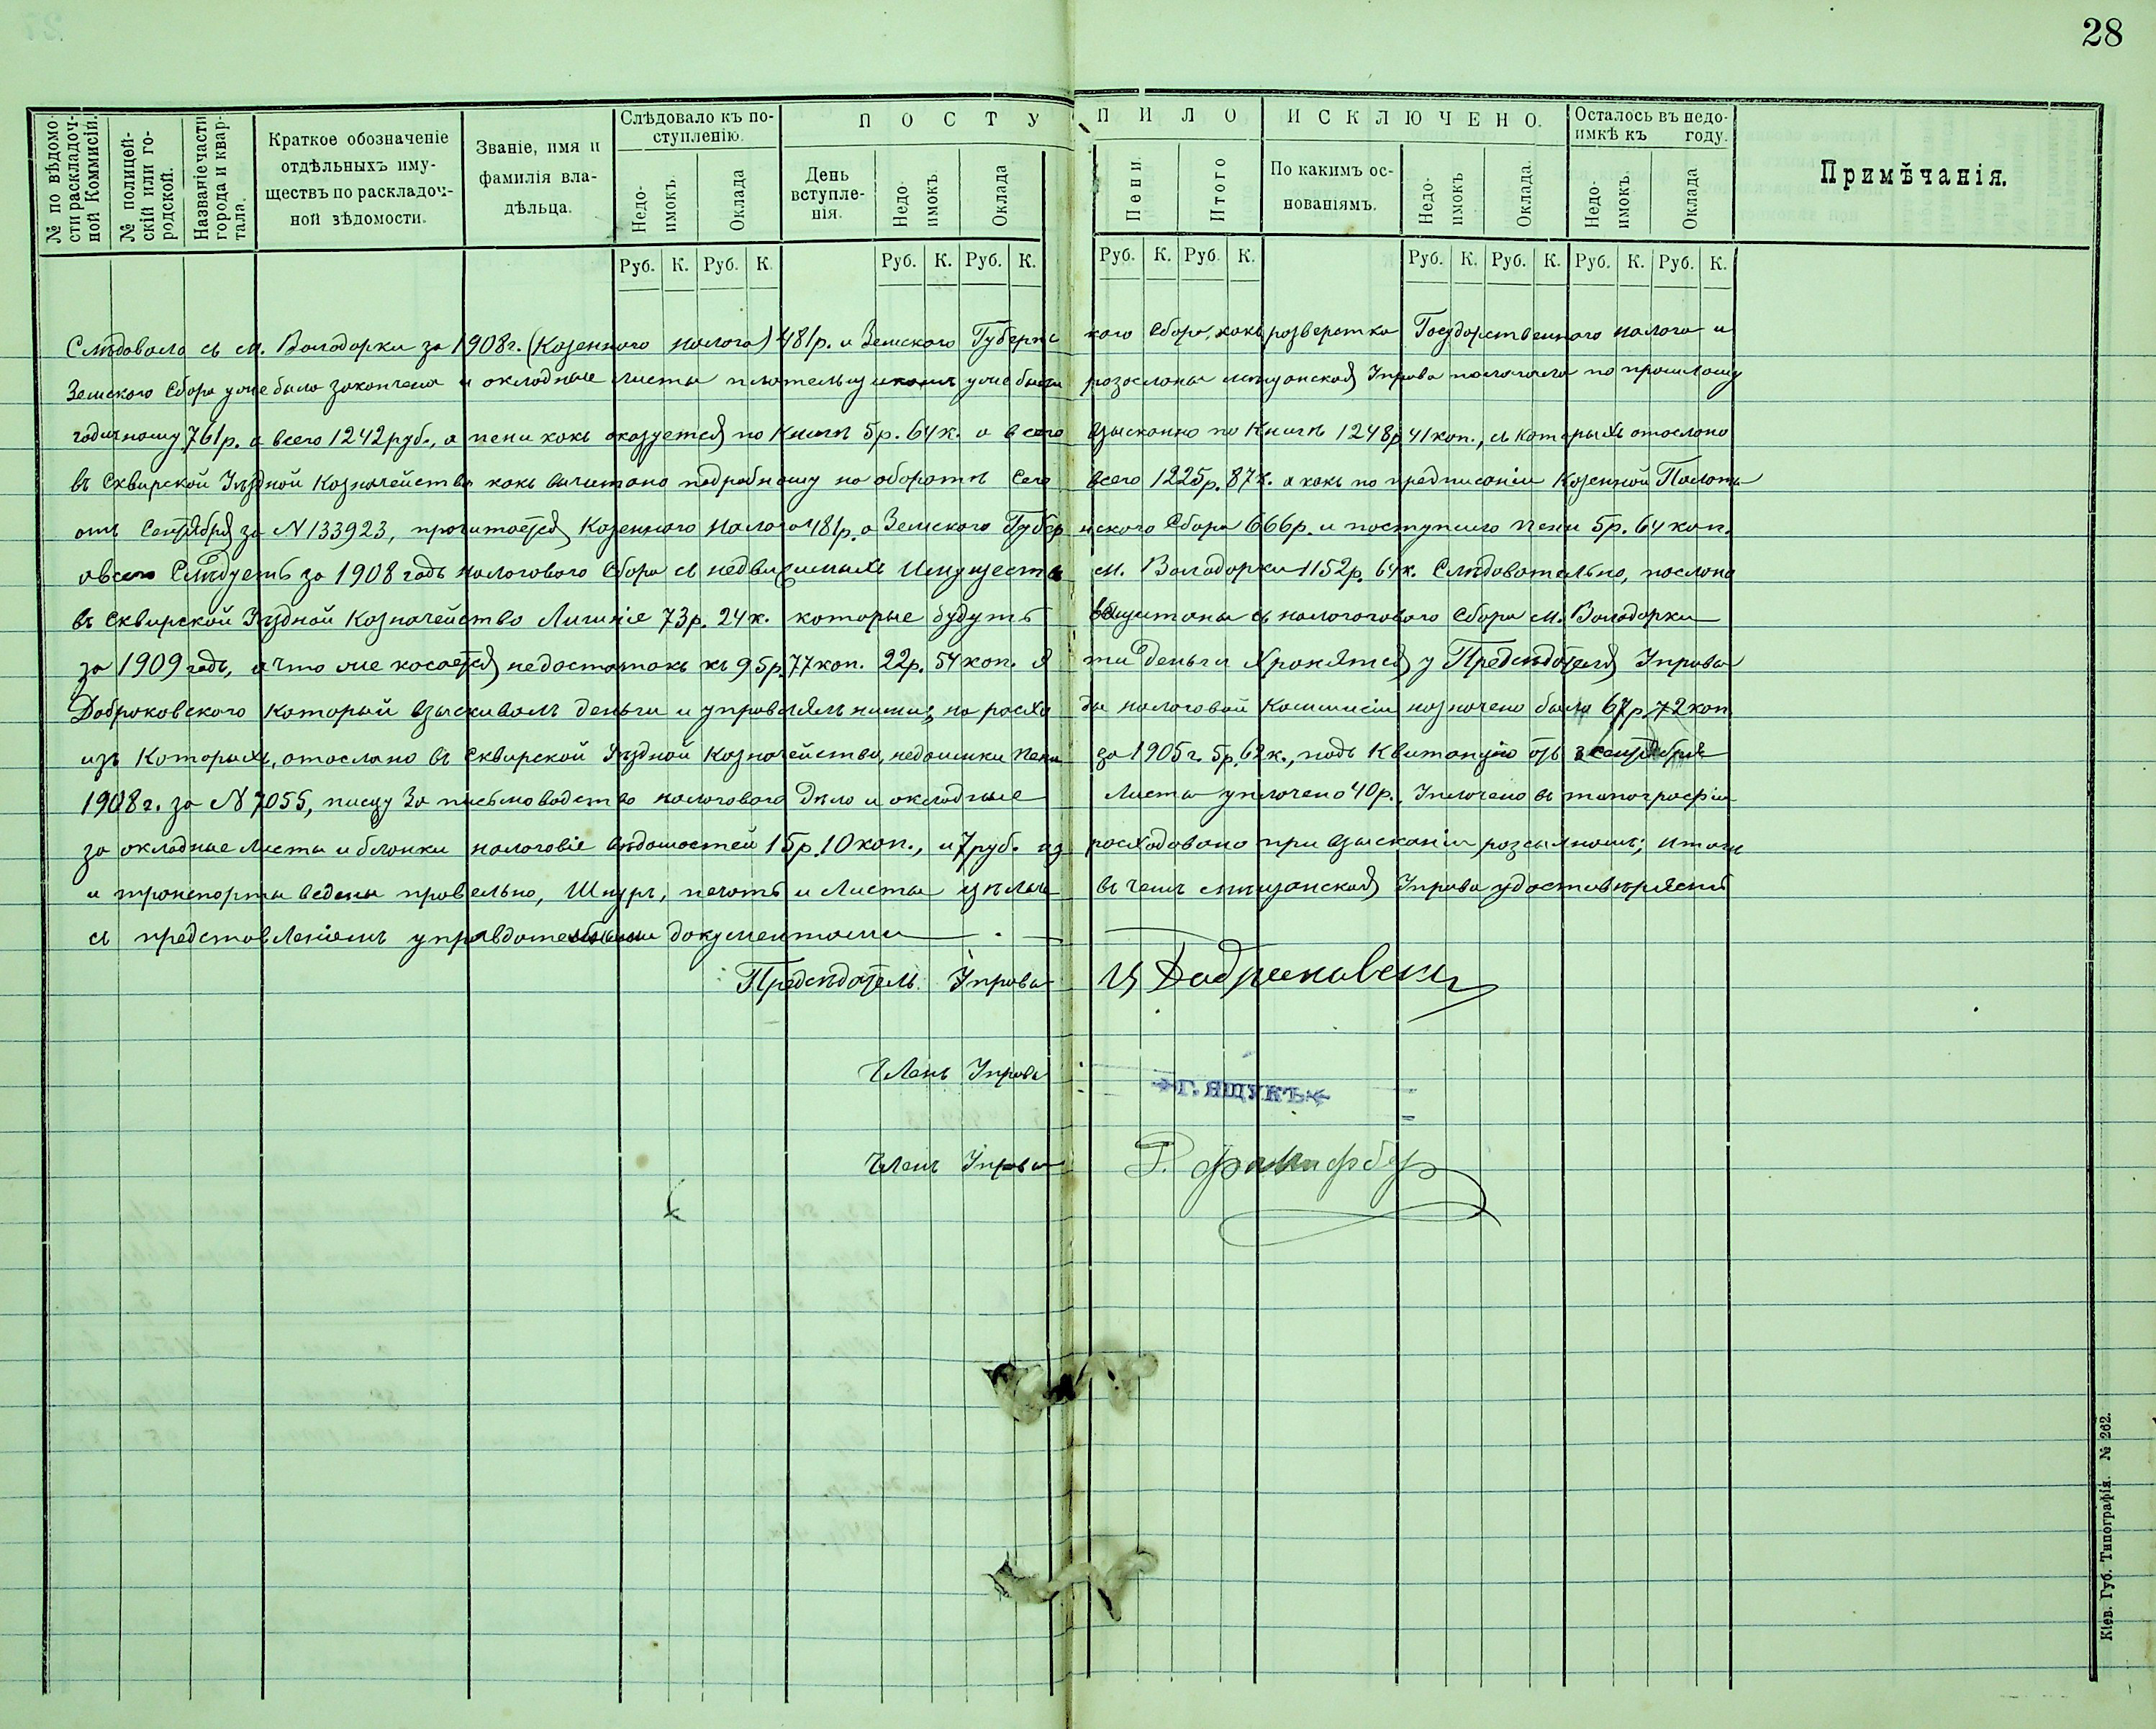 28
№ по вѣдомости раскладочной Коммисіи.
№ полицейскій или городской.
Названіе части города и квартала.
Краткое обозначеніе отдѣльныхъ имуществъ по раскладочной вѣдомости.
Званіе, имя и фамилія владѣльца.
Слѣдовало къ поступленію.
Недоимокъ.
Оклада
ПОСТУПИЛО
День вступленія.
Недоимокъ.
Оклада
Пени.
Итого
ИСКЛЮЧЕНО.
По какимъ основаніямъ.
Недоимокъ
Оклада.
Осталось въ недоимкѣ къ году.
Недоимокъ.
Оклада
Примѣчанія.
Руб. К. Руб. К. Руб. К. Руб. К. Руб. К. Руб. К. Руб. К. Руб. К. Руб. К. Руб. К.
Слѣдовало съ м. Володорки за 1908 г. (Козенного налога) 481 р. и Земского Губернского Сбора, какъ розверстка Государственного налога и
Земского Сбора уже было закончена и окладные листы плательщикомъ уже были розосланы мещанская Управа полагала по прошлому
годичному 761 р. а всего 1242 руб., а пени какъ оказуется по Книгѣ 5 р. 64 к. а всего взысканно по Книгѣ 1248 р 41 коп., съ которыхъ отослано
въ Сквирской Уѣздной Козначейство какъ вычитано подробному на оборотѣ сего всего 1225 р. 87 к. а какъ по предписаніи Козенной Полаты
отъ Сентября за N 133923, прочитается Козенного Налога 481 р. а Земского Губернского Сбора 666 р. и поступило пени 5 р. 64 коп.
а всего Слѣдуетъ за 1908 годъ налогового Сбора съ недвижимыхъ Имуществъ м. Володорки 1152 р. 64 к. Слѣдовательно, послано
въ Сквирской Уѣздной Козначейство Лишніе 73 р. 24 к. которые будутъ вщитаны съ налогогового Сбора м. Володорки
за 1909 годъ, а что же косается недостатокъ къ 95 р. 77 коп. 22 р. 54 коп. эти деньги хронятся у Предсѣдателя Управы
Доброковского который взыскивалъ деньги и управлялъ ними; на расходы налоговой Коммисіи назначено было 67 р. 72 коп
изъ Которыхъ, отослано въ Сквирской Уѣздной Козначейство, недоимки пени за 1905 г. 5 р. 62 к., подъ Квитанцію отъ 3 сентября
1908 г. за N 7055, писцу За письмоводство налогового Дѣло и окладные Листы уплочено 40 р., Уплочено въ типографіи
за окладные листы и бланки налоговіе вѣдомостей 15 р. 10 коп., и 7 руб. израсходовано при взысканіи розсыльномъ; итоги
и транспорты ведены правельно, Шнуръ, печать и Листы цѣлы въ чемъ мѣщанская Управа удостовѣряетъ
съ представленіемъ управдательными документоми
Предсѣдатель Управы
Членъ Управы
Г. ЯЩУКЪ
Членъ Управы
Кіев. Губ. Типографія. № 262.